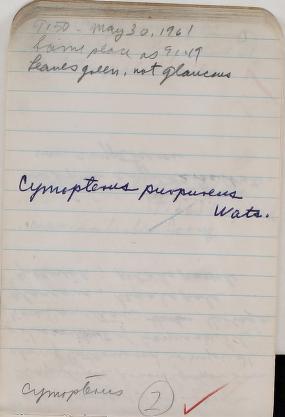 9150 - May 30, 1961
Same place as 9149
Leaves green, not glaucous
Cymopterus purpureus
Wats.
Cymopterus
2